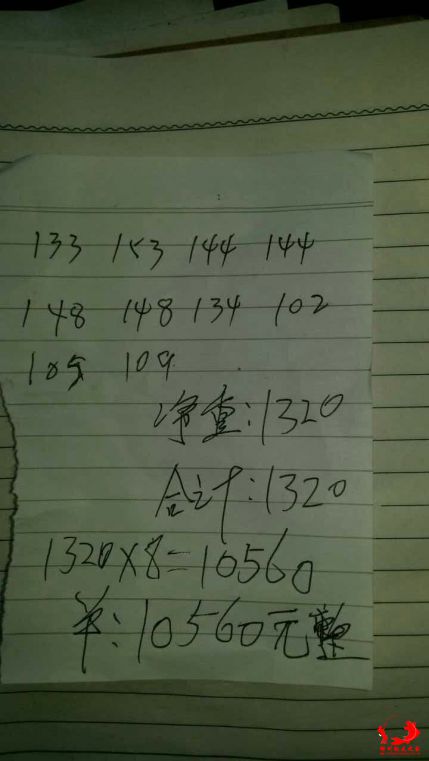 133 153 144 144
148 148 134 102
105 109
净重:1320
合计:1320
1320×8=10560
¥:10560元整